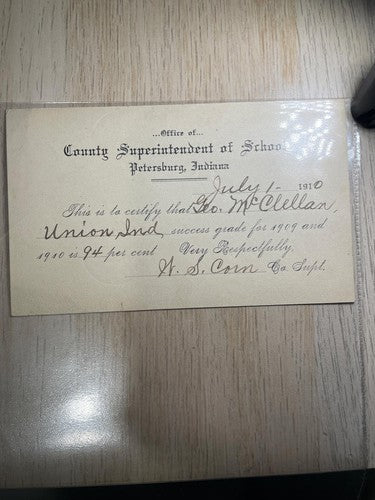 ...Office of...
County Superintendent of Schoo
Petersburg, Indiana
July 1- 1910
This is to certify that Geo. McClellan,
Union Ind success grade for 1909 and
1910 is 94 per cent Very Respectfully,
W. S. Corn Co. Supt.